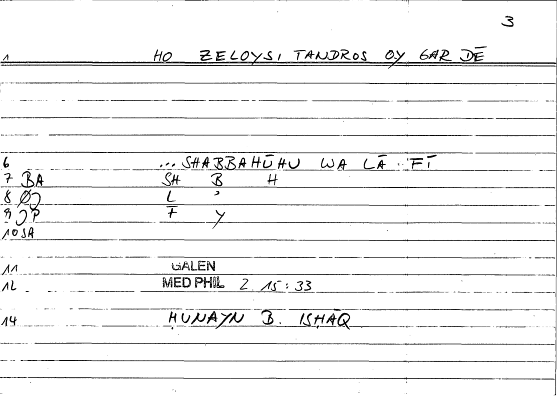 3
1 HO ZELOYSI TANDROS OY GAR DĒ
6 ... SHABBAHŪHU WA LĀ FĪ
7 BA SH B H
8 L ʾ
9 F Y
10 SA
11 GALEN
12 MED PHIL 2 15:33
14 ḤUNAYN B. ISḤĀQ